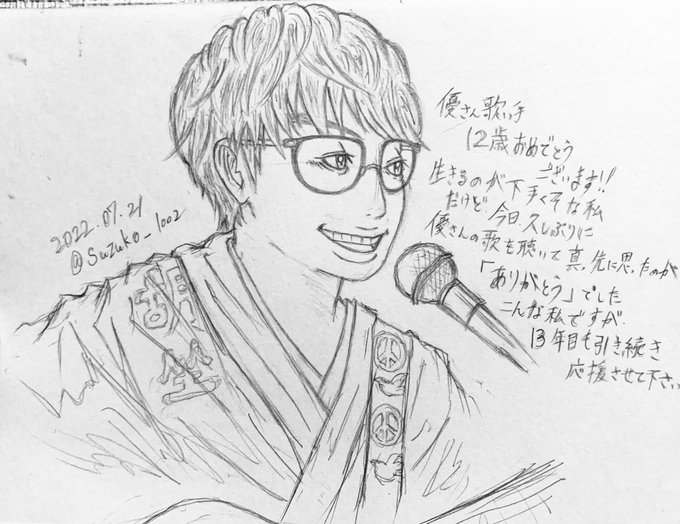 優さん歌い手
12歳おめでとう
ございます!!
生きるのが下手くそな私
だけど 今日久しぶりに
優さんの歌を聴いて真先に思ったのが
「ありがとう」でした
こんな私ですが
13年目も引き続き
応援させて下さい
2022.07.21
@Suzuko_1002